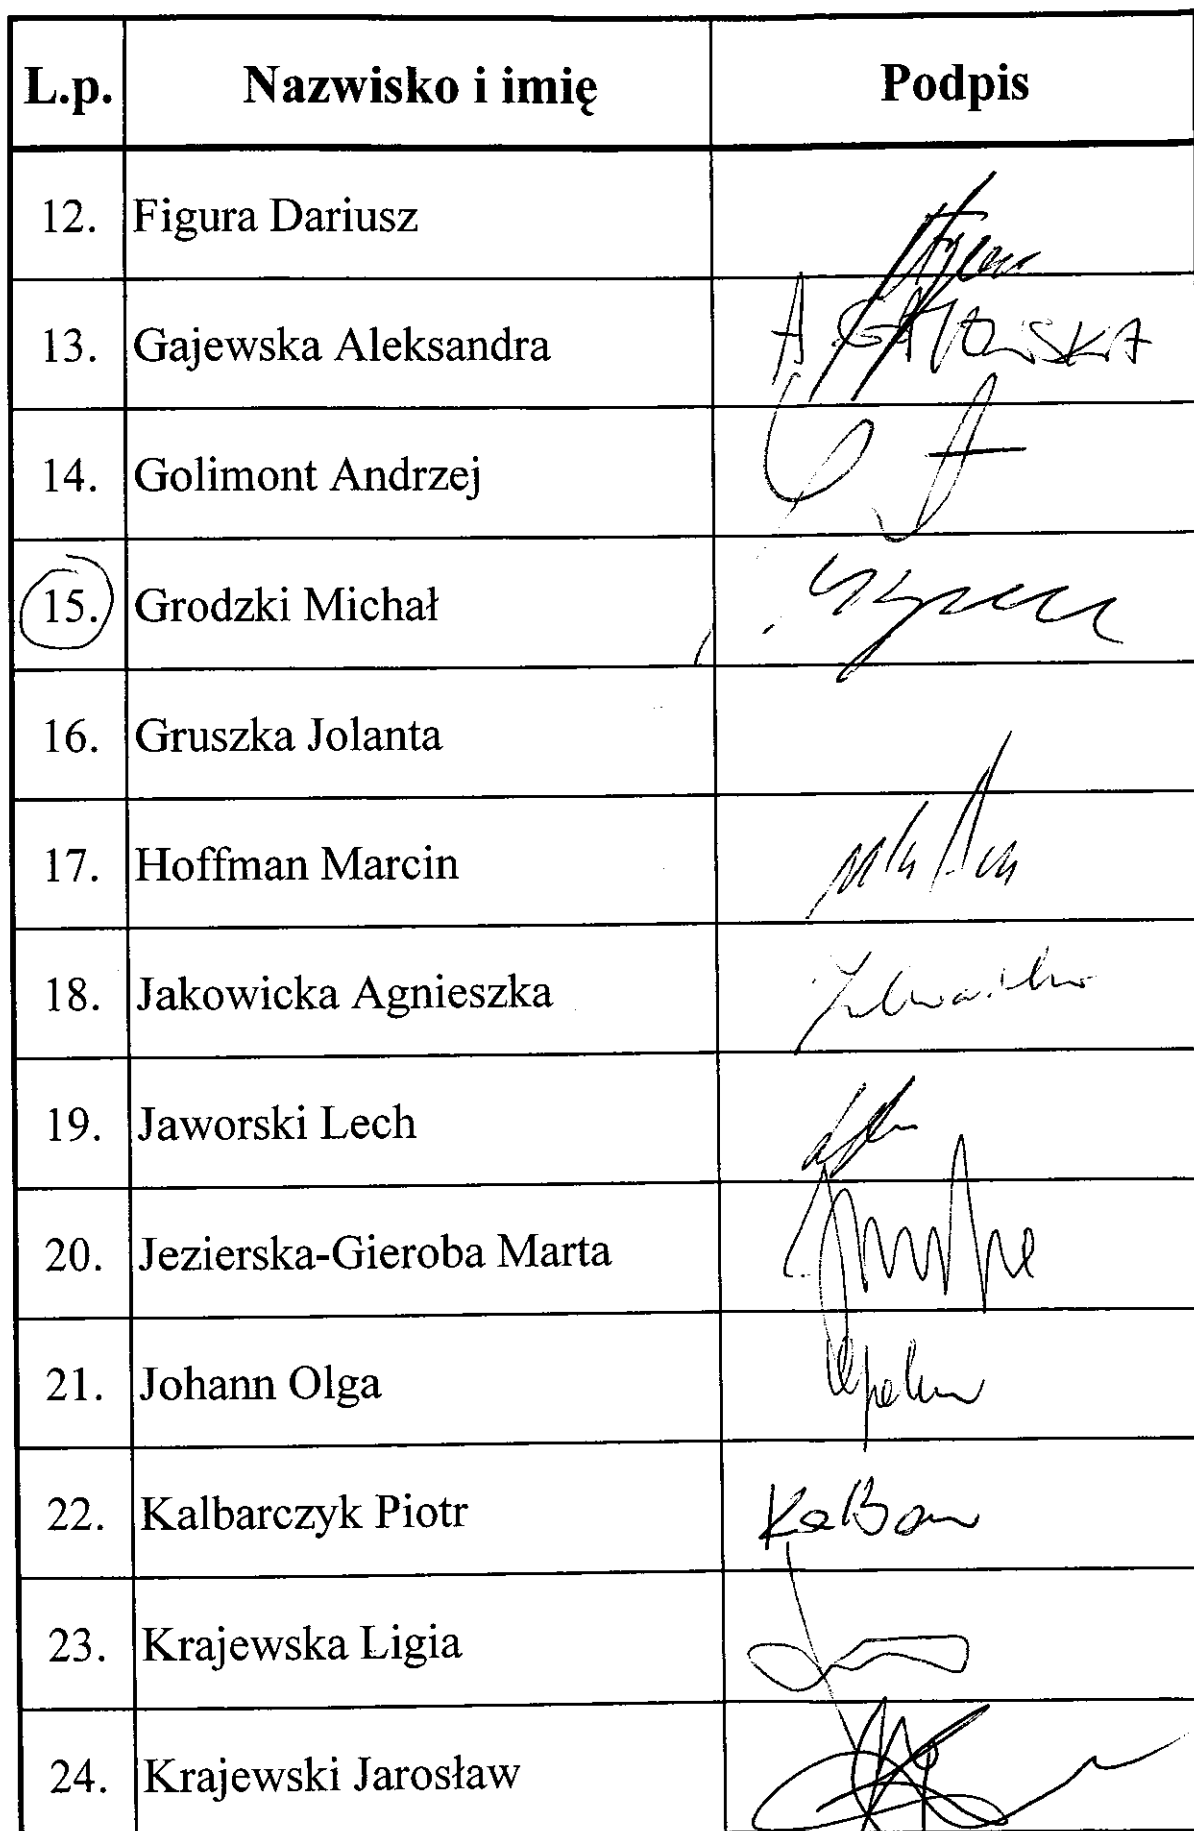 L.p. Nazwisko i imię Podpis
12. Figura Dariusz
13. Gajewska Aleksandra A. GAJEWSKA
14. Golimont Andrzej
15. Grodzki Michał
16. Gruszka Jolanta
17. Hoffman Marcin
18. Jakowicka Agnieszka
19. Jaworski Lech
20. Jezierska-Gieroba Marta
21. Johann Olga
22. Kalbarczyk Piotr
23. Krajewska Ligia
24. Krajewski Jarosław